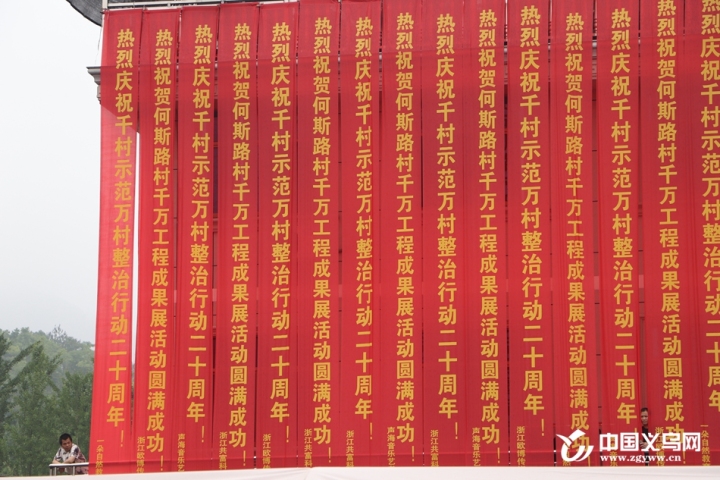 热烈庆祝千村示范万村整治行动二十周年！
一朵自然教
热烈祝贺何斯路村千万工程成果展活动圆满成功！
浙江欧博传
热烈庆祝千村示范万村整治行动二十周年！
声海音乐艺
热烈祝贺何斯路村千万工程成果展活动圆满成功！
浙江共富科
热烈庆祝千村示范万村整治行动二十周年！
浙江欧博传
热烈祝贺何斯路村千万工程成果展活动圆满成功！
浙江共富科
热烈庆祝千村示范万村整治行动二十周年！
浙江欧博传
热烈祝贺何斯路村千万工程成果展活动圆满成功！
声海音乐艺
热烈庆祝千村示范万村整治行动二十周年！
浙江共富科
热烈祝贺何斯路村千万工程成果展活动圆满成功！
声海音乐艺
热烈庆祝千村示范万村整治行动二十周年！
浙江欧博传
热烈祝贺何斯路村千万工程成果展活动圆满成功！
浙江
热烈庆祝千村示范万村整治行动二十周年！
热烈祝贺何斯路村千万工程成果展活动圆满成功！
热烈庆祝千村示范万村整治行动二十周年！
一朵自然教
中国义乌网
www.zgyww.cn